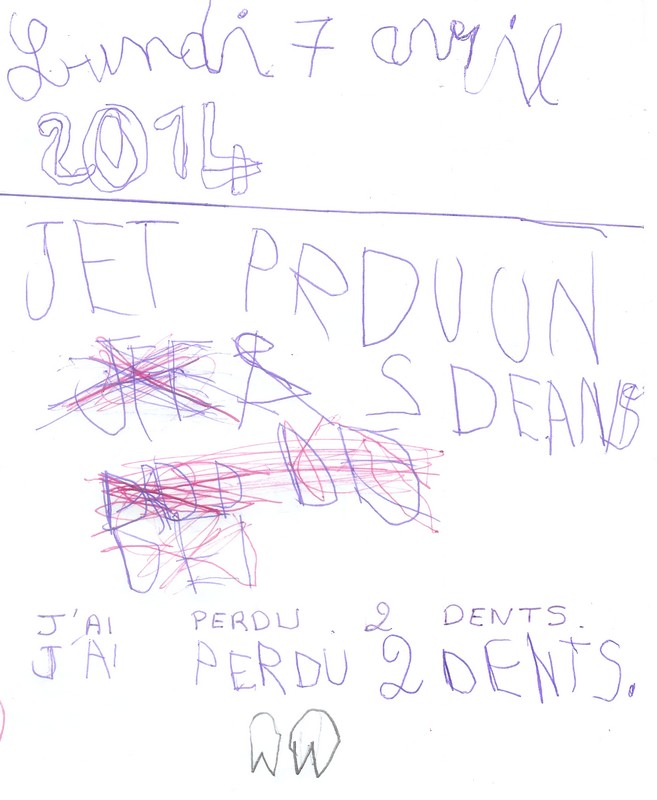 Lundi 7 avril
2014
JET PRDUUN
2 DEANS
J'AI PERDU 2 DENTS.
J'AI PERDU 2 DENTS.